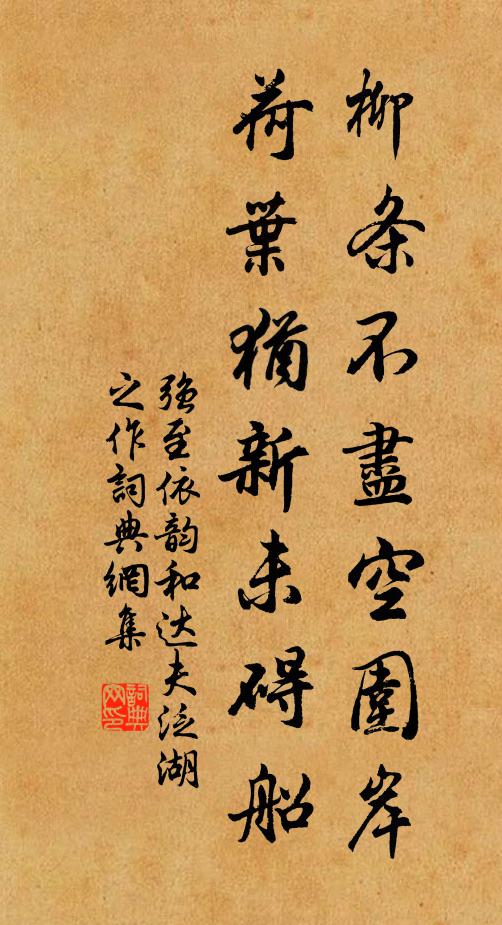 柳条不盡空圍岸
荷葉猶新未碍船
強至依韵和达夫泛湖
之作詞典網集
詞典
网印